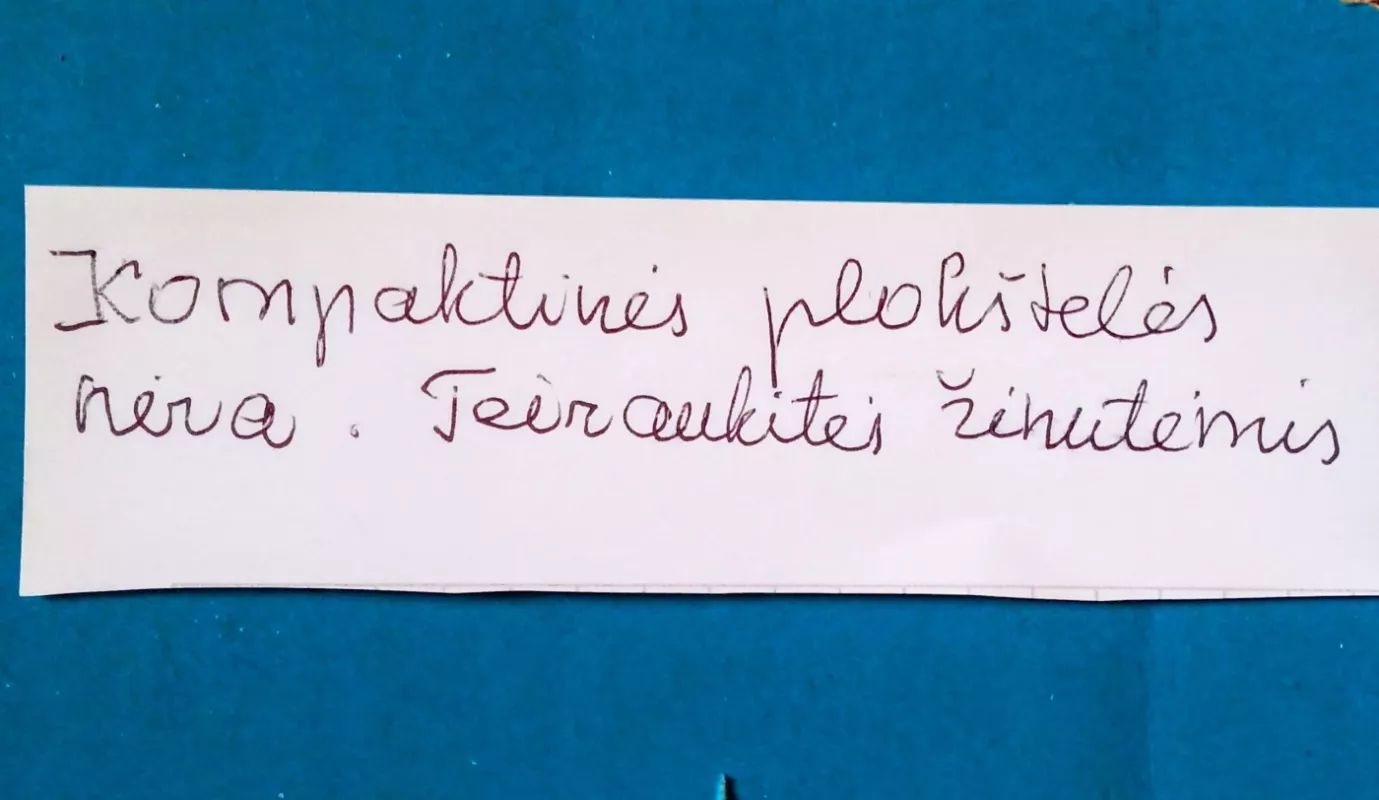 Kompaktinės plokštelės
nėra. Teiraukitės žinutėmis